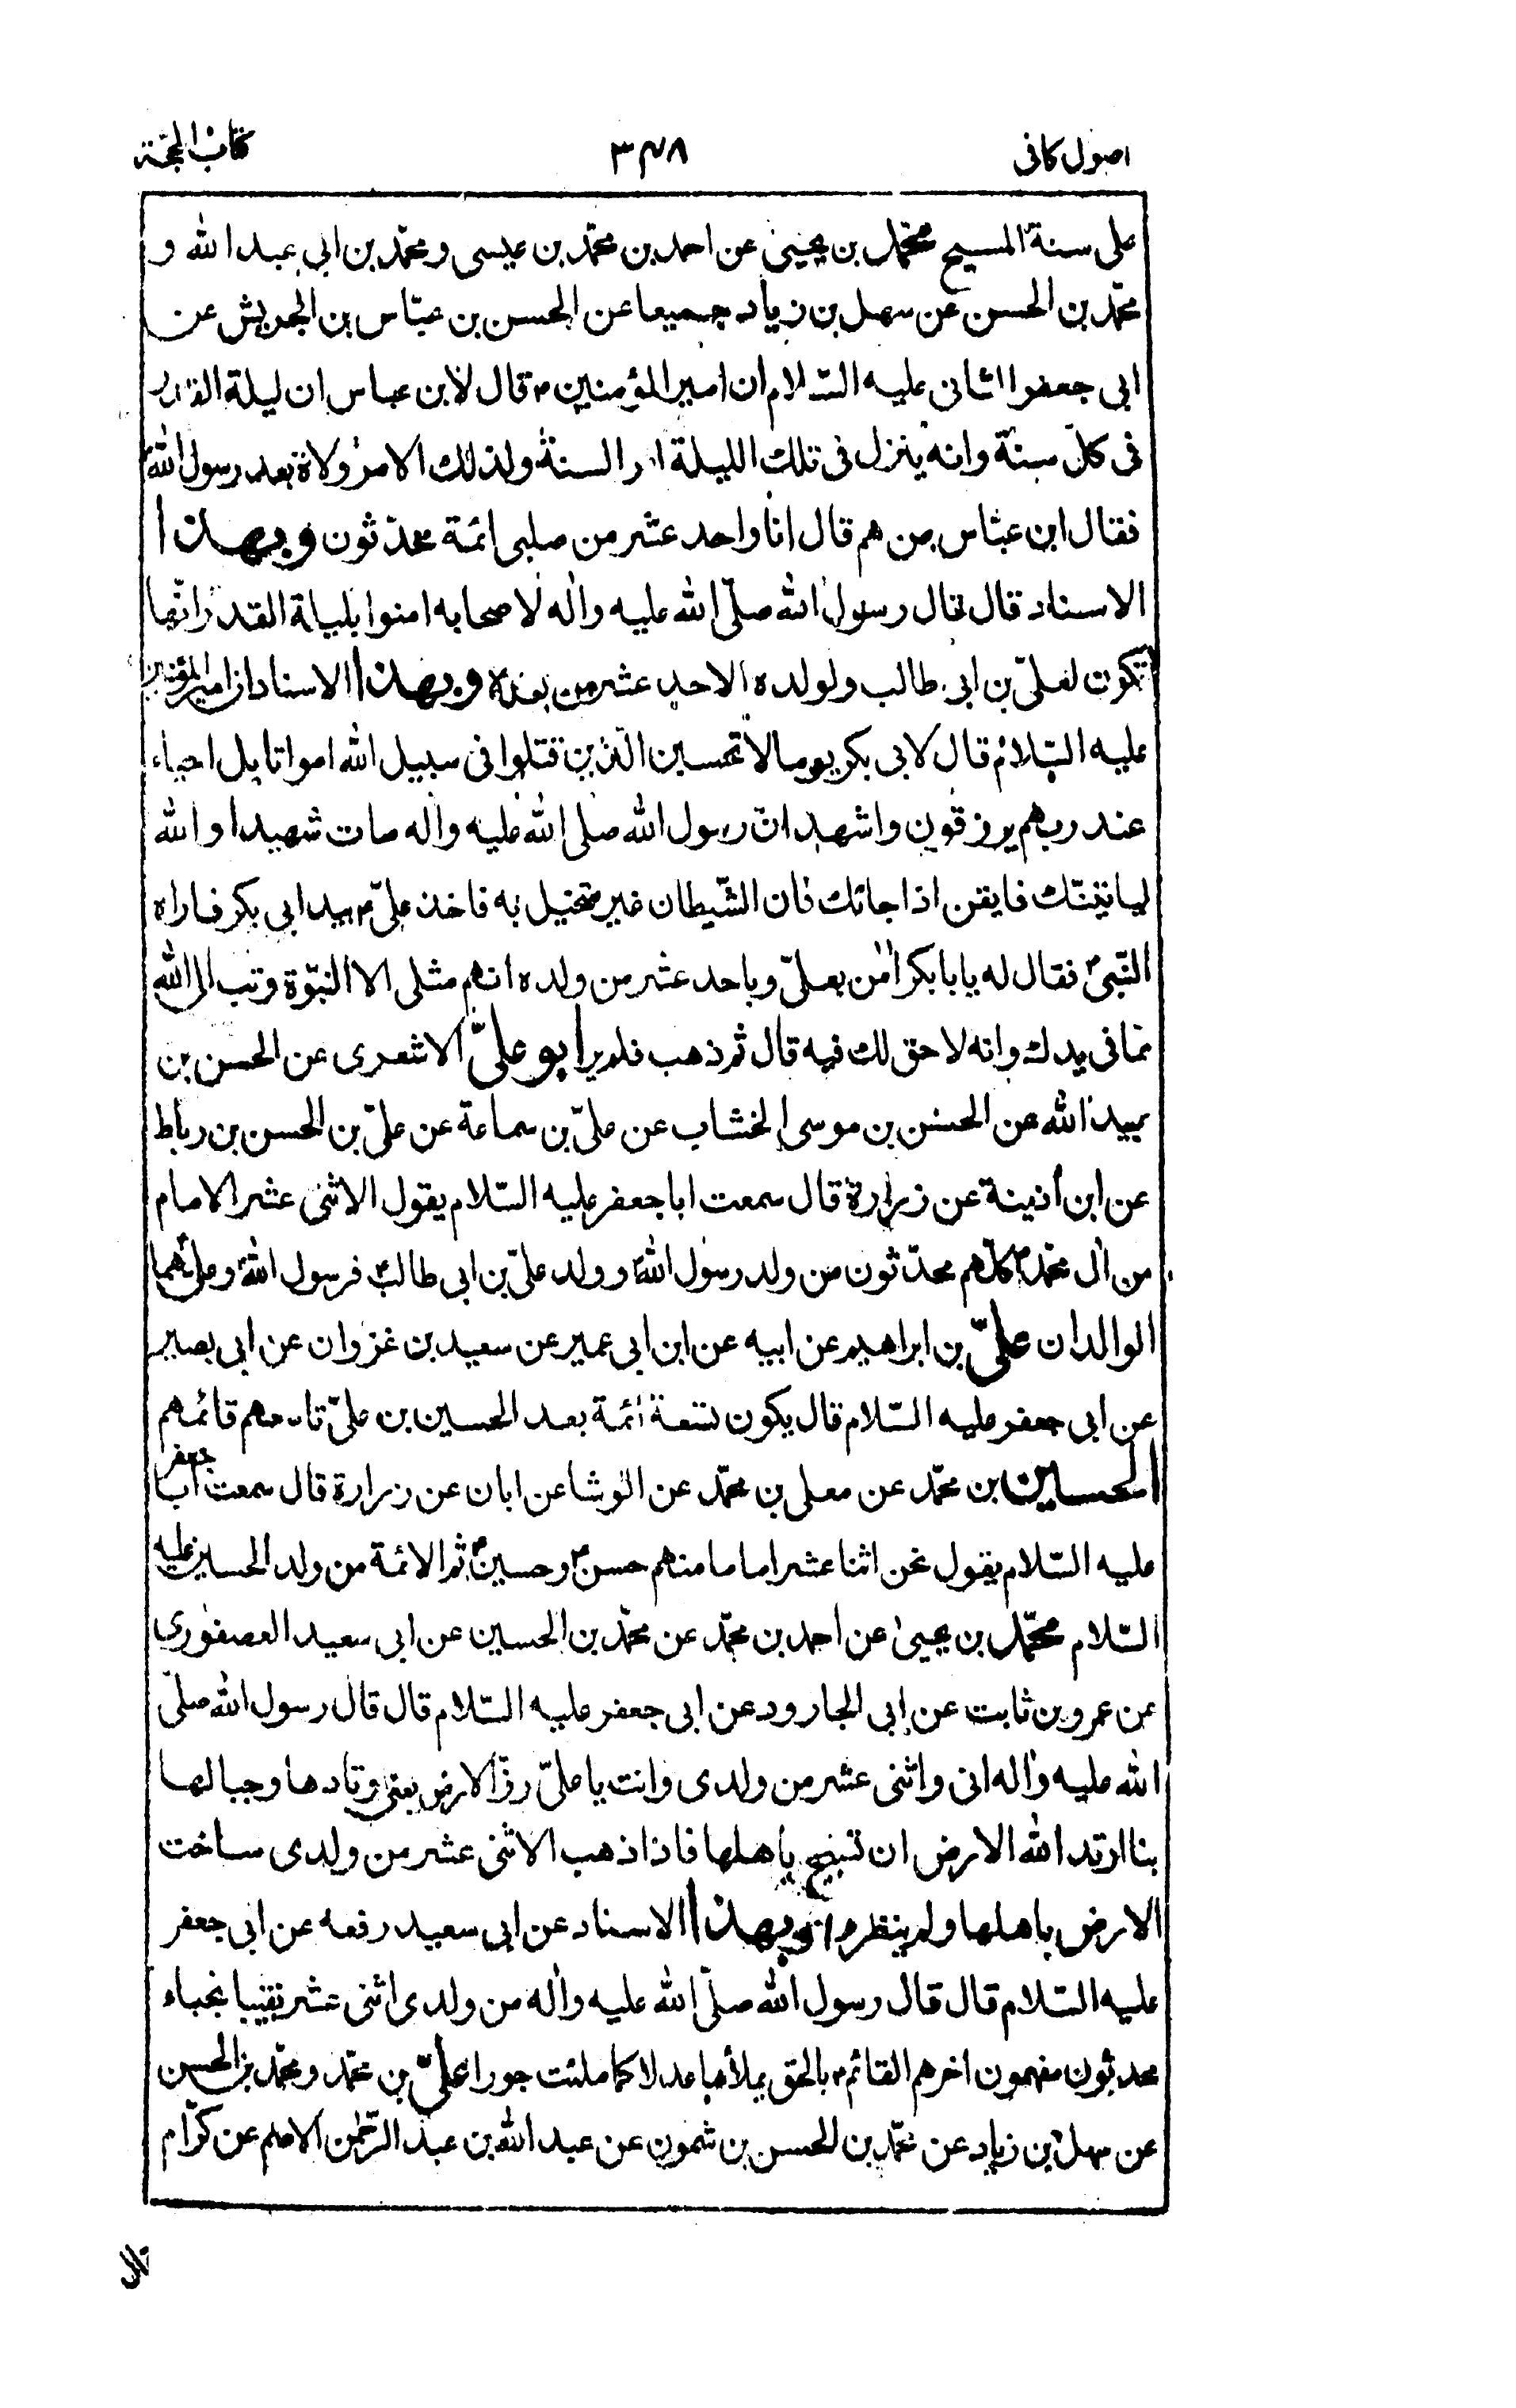 اصول كافى
٣٤٨
كتاب الحجّة
على سنة المسيح محمّد بن يحيى عن احمد بن محمّد بن عيسى ومحمّد بن ابى عبد الله و
محمّد بن الحسن عن سهل بن زياد جميعا عن الحسن بن عبّاس بن الجريش عن
ابى جعفر الثانى عليه السّلام ان امير المؤمنين ۴ قال لابن عباس ان ليلة القدر
فى كلّ سنة وانه ينزل فى تلك الليلة امر السنة ولذلك الامر ولاة بعد رسول اللهؐ
فقال ابن عبّاس من هم قال انا واحد عشر من صلبى ائمة محدّثون وبهذا
الاسناد قال قال رسول الله صلّى الله عليه واله لاصحابه امنوا بليلة القدر انّها
تكون لعلىّ بن ابى طالب ولولده الاحد عشر من بعده وبهذا الاسناد ان امير المؤمنين
عليه السّلام قال لابى بكر يوما لا تحسبن الّذين قتلوا فى سبيل الله امواتا بل احياء
عند ربهم يرزقون واشهد انّ رسول الله صلى الله عليه واله مات شهيدا والله
لياتينّك فايقن اذا جائك فان الشّيطان غير متخيل به فاخذ علىّ ۴ بيد ابى بكر فاراه
النّبىّؐ فقال له يا بابكر امن بعلىّ وباحد عشر من ولده انهم مثلى الا النبّوة وتب الى الله
مما فى يدك وانه لا حق لك فيه قال ثم ذهب فلم ير ابو علىّ الاشعرى عن الحسن بن
عبيد الله عن الحسن بن موسى الخشاب عن علىّ بن سماعة عن علىّ بن الحسن بن رباط
عن ابن اذينة عن زرارة قال سمعت ابا جعفر عليه السّلام يقول الاثنى عشر الامام
من ال محمّدؐ كلّهم محدّثون من ولد رسول اللهؐ و ولد علىّ بن ابى طالبؑ فرسول اللهؐ وعلىؑ هما
الوالدان علىّ بن ابراهيم عن ابيه عن ابن ابى عمير عن سعيد بن غزوان عن ابى بصير
عن ابى جعفر عليه السّلام قال يكون تسعة ائمة بعد الحسين بن علىّ تاسعهم قائمهم
الحسين بن محمّد عن معلى بن محمّد عن الوشا عن ابان عن زرارة قال سمعت ابا جعفر
عليه السّلام يقول نحن اثنا عشر اماما منهم حسنؑ وحسينؑ ثم الائمة من ولد الحسين عليه
السّلام محمّد بن يحيى عن احمد بن محمّد عن محمّد بن الحسين عن ابى سعيد العصفورى
عن عمرو بن ثابت عن ابى الجارود عن ابى جعفر عليه السّلام قال قال رسول الله صلّى
الله عليه واله انى واثنى عشر من ولدى وانت يا علىّ رزّ الارض يعنى اوتادها وجبالها
بنا اوتد الله الارض ان تسيخ باهلها فاذا ذهب الاثنى عشر من ولدى ساخت
الارض باهلها ولم ينظروا وبهذا الاسناد عن ابى سعيد رفعه عن ابى جعفر
عليه السّلام قال قال رسول الله صلّى الله عليه واله من ولدى اثنى عشر نقيبا نجباء
محدثون مفهمون اخرهم القائم ۴ بالحق يملأها عدلا كما ملئت جورا علىّ بن محمّد ومحمّد بن الحسن
عن سهل بن زياد عن محمّد بن الحسن بن شمون عن عبد الله بن عبد الرّحمن الاصم عن كرّام
قال